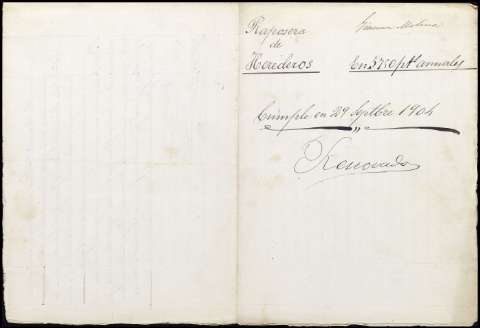 Raposera
de
Herederos
Molina
En 5750 pts annuales
Cumple en 29 Septbre 1904
Renovado